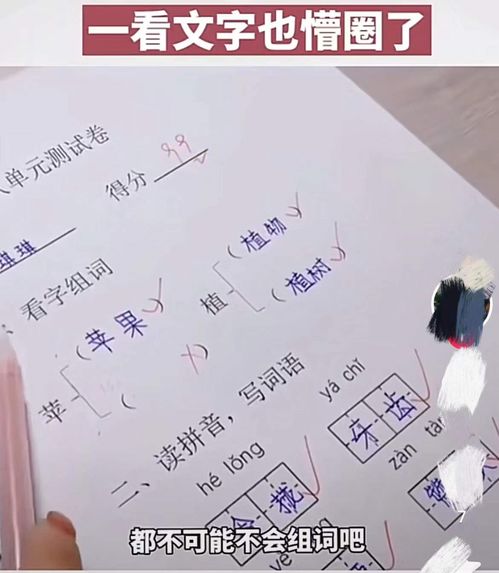 一看文字也懵圈了
单元测试卷
得分 99
琪琪
看字组词
苹 (苹果)
( )
植 (植物)
(植树)
二、读拼音，写词语
hé lǒng
拢
yá chǐ
牙齿
zàn
都不可能不会组词吧